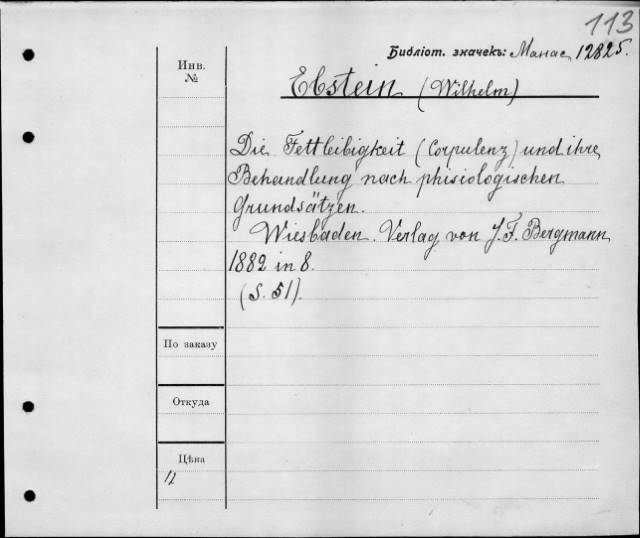 113
Библіот. значекъ: Манас 12825.
Инв.
№
Ebstein (Wilhelm)
Die Fettleibigkeit (Corpulenz) und ihre
Behandlung nach phisiologischen
Grundsätzen.
Wiesbaden. Verlag von J. F. Bergmann
1882 in 8.
(S. 51).
По заказу
Откуда
Цѣна